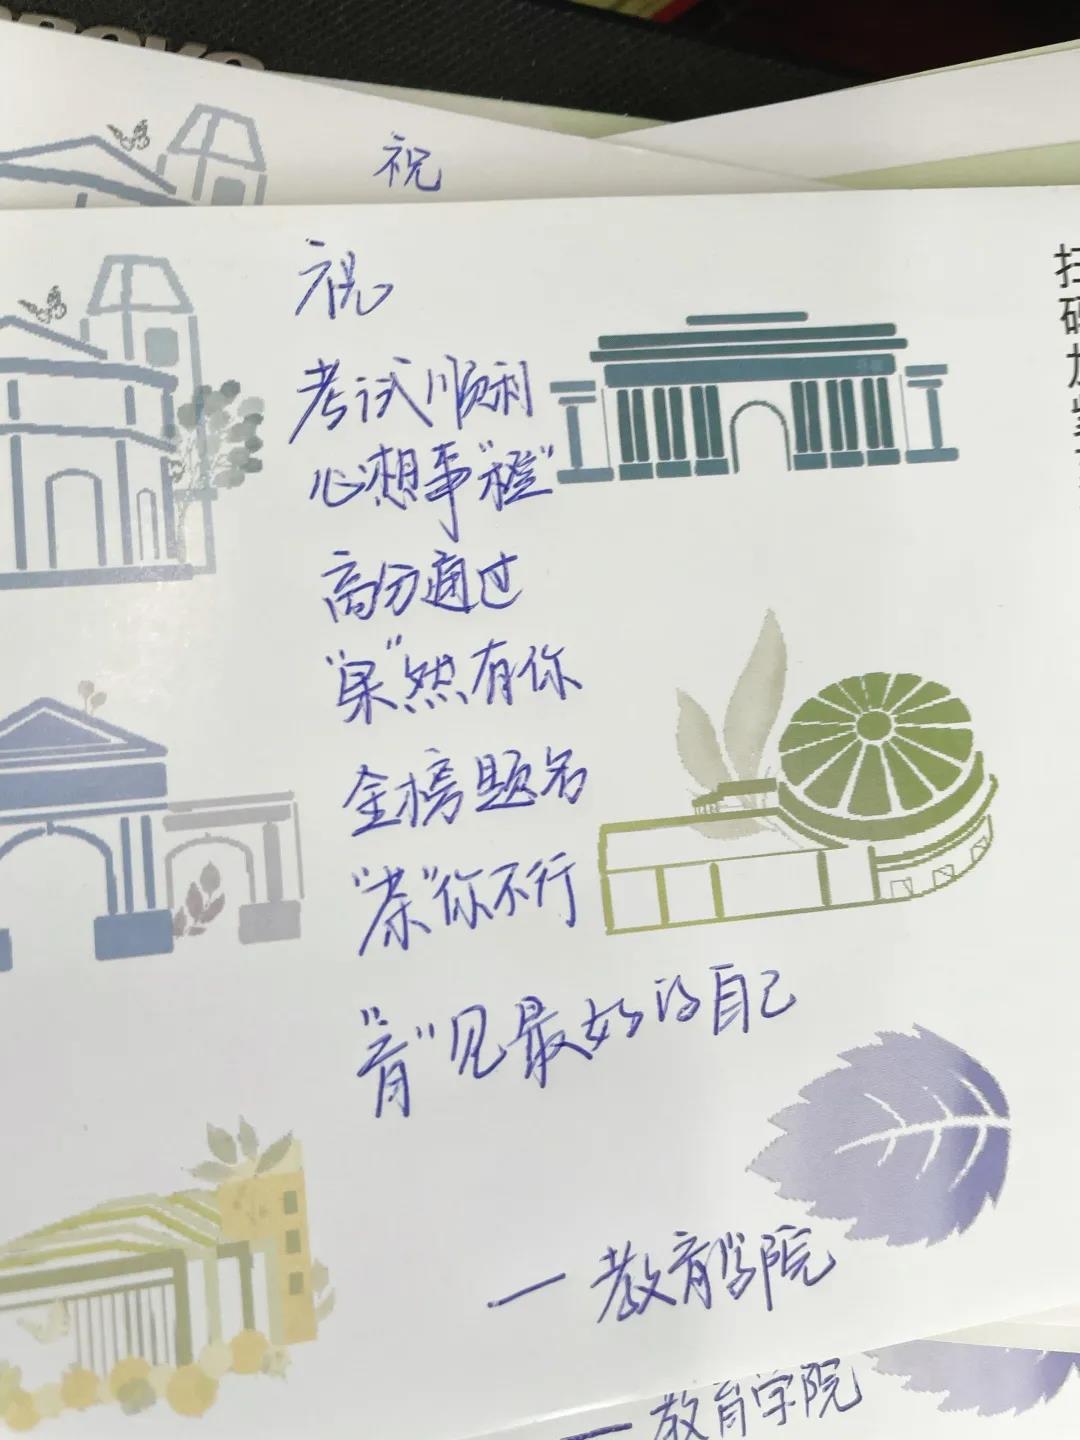 祝
祝
考试顺利
心想事"橙"
高分通过
"果"然有你
金榜题名
"茶"你不行
"育"见最好的自己
一教育学院
一教育学院
扫码